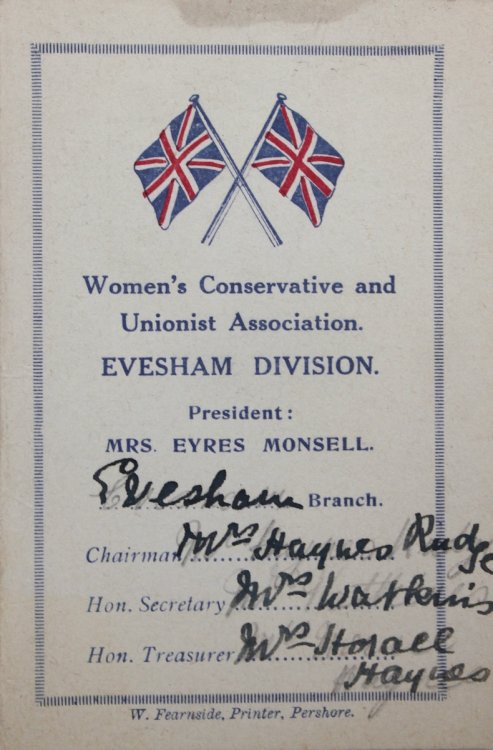 Women's Conservative and
Unionist Association.
EVESHAM DIVISION.
President:
MRS. EYRES MONSELL.
Evesham Branch.
Chairman Mrs Haynes
Hon. Secretary Mrs Watkins
Hon. Treasurer Mrs Horace
Haynes
W. Fearnside, Printer, Pershore.